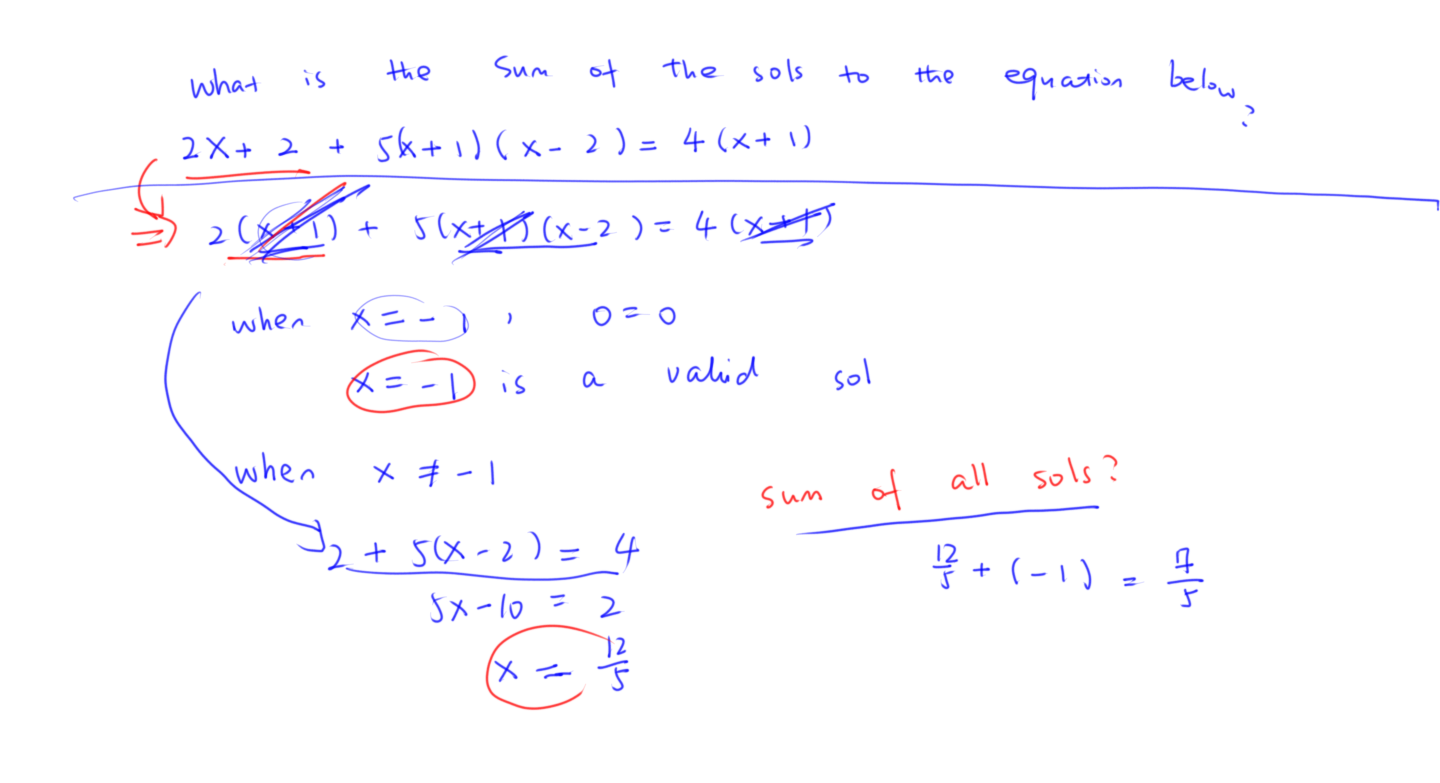 what is the sum of the sols to the equation below?
2x + 2 + 5(x+1)(x-2) = 4(x+1)
⇒ 2(x+1) + 5(x+1)(x-2) = 4(x+1)
when x = -1, 0 = 0
x = -1 is a valid sol
when x ≠ -1
2 + 5(x-2) = 4
5x-10 = 2
x = 12/5
sum of all sols?
12/5 + (-1) = 7/5